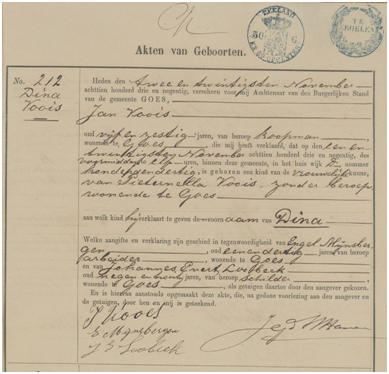 ZEELAND
50 C
TE
Akten van Geboorten.
No. 212
Dina
Voois
Heden den twee en twintigsten November
achttien honderd drie en negentig, verscheen voor mij Ambtenaar van den Burgerlijken Stand
van de gemeente GOES,
Jan Voois
oud vijf en zestig jaren, van beroep koopman,
wonende te Goes, die mij heeft verklaard, dat op den een en
twintigsten November achttien honderd drie en negentig, des
voormiddags elf uren, binnen deze gemeente, in het huis wijk D, nummer
honderd dertig, is geboren een kind van de vrouwelijke
van Pieternella Voois, zonder beroep,
wonende te Goes
aan welk kind hij verklaart te geven de voornaam van Dina
Welke aangifte en verklaring zijn geschied in tegenwoordigheid van Engel Mijnsber
gen, oud een en dertig jaren, van beroep
arbeider, wonende te Goes
en van Johannes Evert
oud negen en twintig jaren, van beroep schilder,
wonende te Goes, als getuigen daartoe door den aangever gekozen.
En is hiervan aanstonds opgemaakt deze akte, die, na gedane voorlezing aan den aangever en
de getuigen, door hen en mij is geteekend.
J Voois
E Mijnsbergen
J E